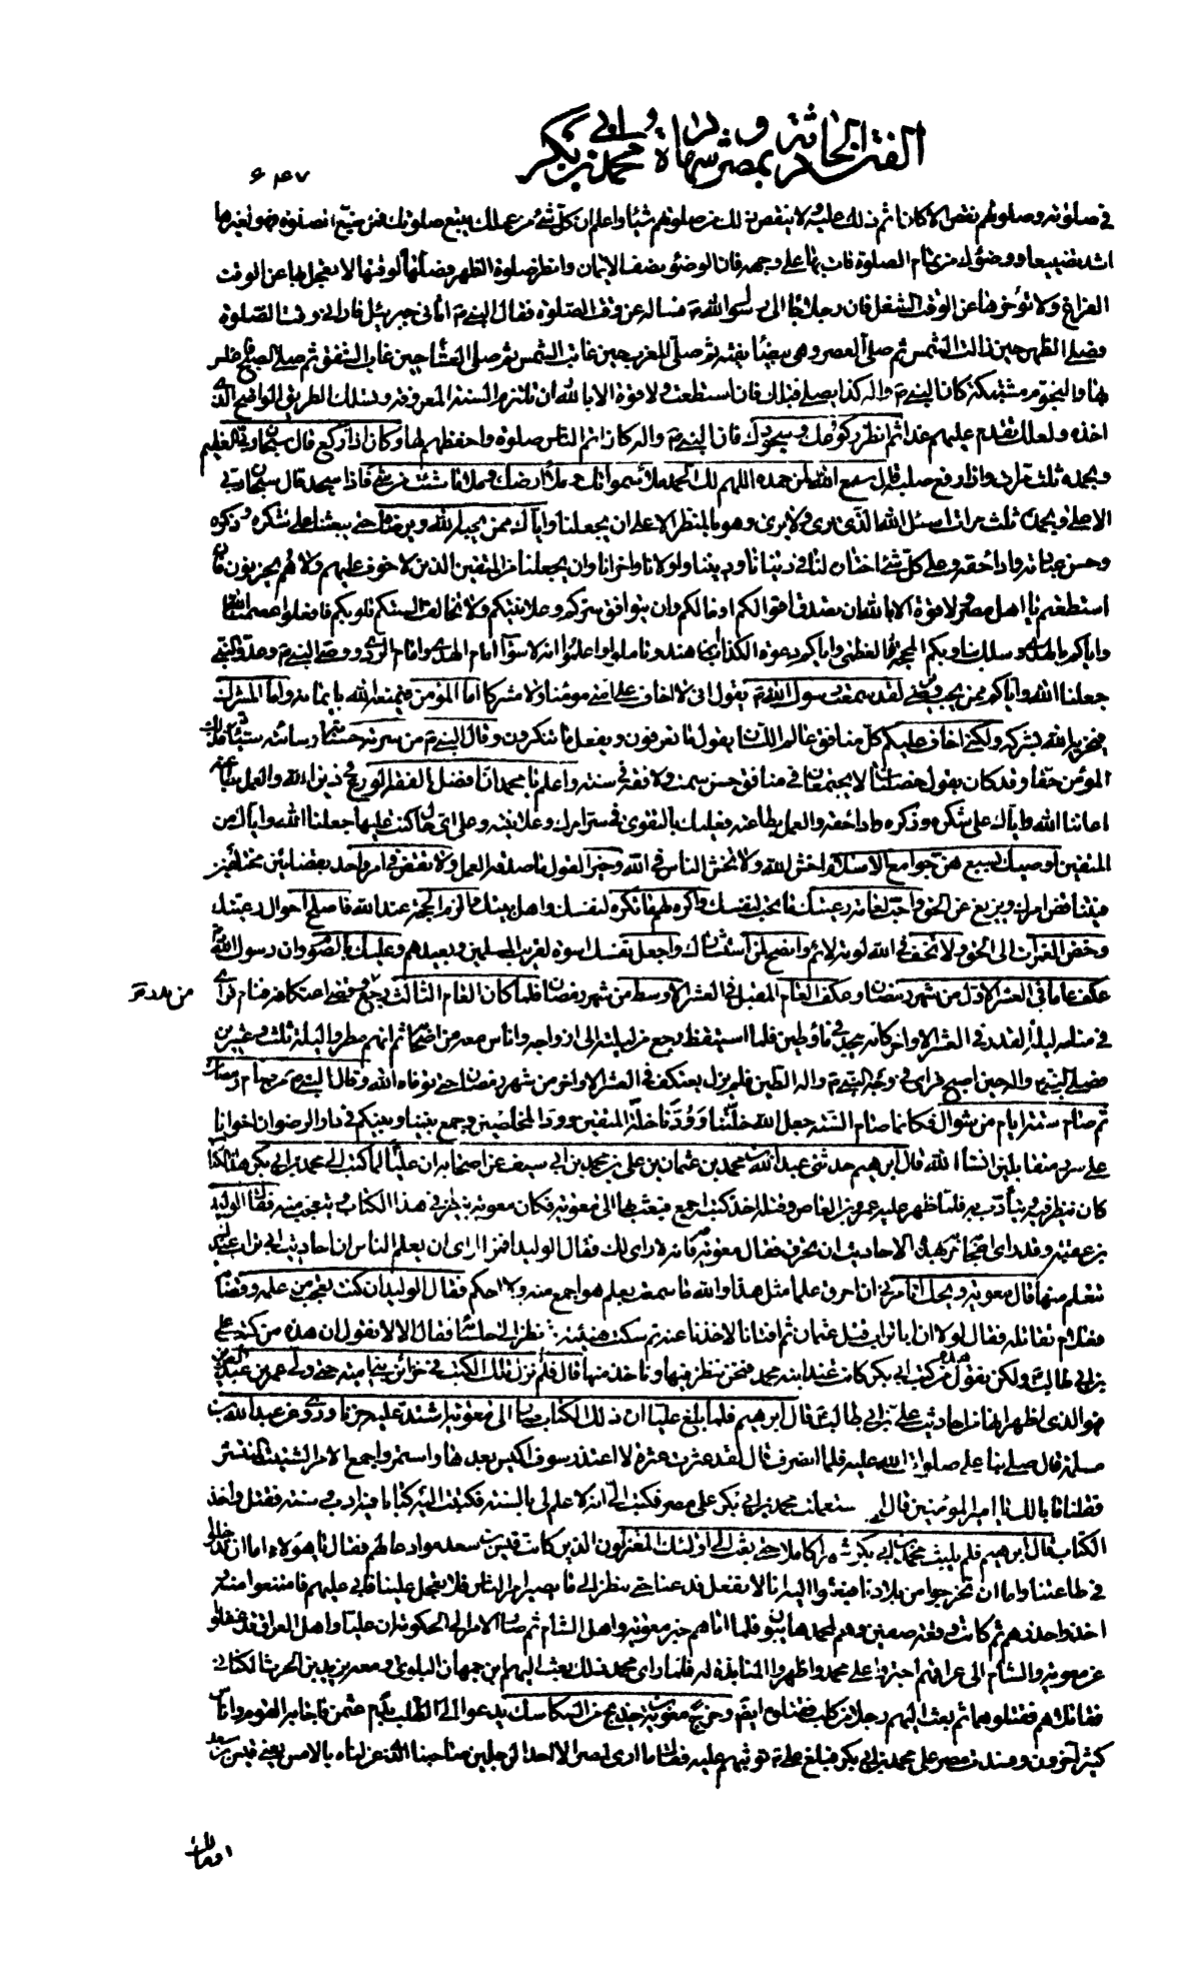 الفتن الحادثة بمصر و شهادة محمد بن ابي بكر
۶۴۷
في صلوته وصلوتهم نقص الا كان اثم ذلك عليه ولا ينقص ذلك من صلوتهم شيئا واعلم ان كل شئ من عملك يتبع صلوتك فمن ضيع الصلوة فهو لغيرها
اشد تضييعا ووضوئك من تمام الصلوة فات بها على وجهه فان الوضوء نصف الايمان وانظر صلوة الظهر فصلها لوقتها لا تعجل بها عن الوقت
الفراغ ولا تؤخرها عن الوقت الشغل فان رجلا جاء الى رسول الله ص فساله عن وقت الصلوة فقال النبي ص اتاني جبرئيل فاراني وقت الصلوة
فصلى الظهر حين زالت الشمس ثم صلى العصر وهي بيضاء نقية ثم صلى المغرب حين غابت الشمس ثم صلى العشاء حين غاب الشفق ثم صلى الصبح فغلس
بها والنجوم مشتبكة كان النبي ص واله كذا يصلي قبلك فان استطعت ولا قوة الا بالله ان تلتزم السنة المعروفة وتسلك الطريق الواضح الذي
اخذوه ولعلك تقدم عليهم غدا ثم انظر ركوعك وسجودك فان النبي ص واله كان اتم الناس صلوة واحفظهم لها وكان اذا ركع قال سبحان ربي العظيم
وبحمده ثلث مرات واذا رفع صلبه قال سمع الله لمن حمده اللهم لك الحمد ملأ سمواتك وملأ ارضك وملأ ما شئت من شئ فاذا سجد قال سبحان ربي
الاعلى وبحمده ثلث مرات اسئل الله الذي يرى ولا يرى وهو بالمنظر الاعلى ان يجعلنا واياك ممن يحبه الله ويرضاه حتى يبعثنا على شكره وذكره
وحسن عبادته واداء حقه وعلى كل شئ اختاره لنا في دنيانا وديننا واولانا واخرانا وان يجعلنا من المتقين الذين لا خوف عليهم ولا هم يحزنون فان
استطعتم يا اهل مصر ولا قوة الا بالله ان تصدق اقوالكم افعالكم وان يتوافق سركم وعلانيتكم ولا تخالف السنتكم قلوبكم فافعلوا عصمنا الله
واياكم بالهدى وسلك بنا وبكم المحجة العظمى واياكم ودعوة الكذاب ابن هند وتاملوا واعلموا انه لا سواء امام الهدى وامام الردى ووصي النبي ص وعدو النبي
جعلنا الله واياكم ممن يحب ويرضى لقد سمعت رسول الله ص يقول اني لا اخاف على امتي مؤمنا ولا مشركا اما المؤمن فيمنعه الله بايمانه واما المشرك
فيخزيه الله بشركه ولكني اخاف عليكم كل منافق عالم اللسان يقول ما تعرفون ويفعل ما تنكرون وقال النبي ص من سرته حسناته وسائته سيئاته فذلك
المؤمن حقا وقد كان يقول خصلتان لا يجتمعان في منافق حسن سمت ولا فقه في سنة واعلم يا محمد ان افضل الفقه الورع في دين الله والعمل بطاعته
اعاننا الله واياك على شكره وذكره واداء حقه والعمل بطاعته فعليك بالتقوى في سر امرك وعلانيته وعلى اي حال كنت عليها جعلنا الله واياك من
المتقين اوصيك بسبع هن جوامع الاسلام اخش الله ولا تخش الناس في الله وخير القول ما صدقه العمل ولا تقض في امر واحد بقضائين مختلفين
فيتناقض امرك وتزيغ عن الحق واحب لعامة رعيتك ما تحب لنفسك واكره لهم ما تكره لنفسك واهل بيتك والزم الحجة عند الله فاصلح احوال رعيتك
وخض الغمرات الى الحق ولا تخف في الله لومة لائم وانصح لمن استشارك واجعل نفسك اسوة لقريب المسلمين وبعيدهم وعليك بالصوم وان رسول الله ص
عكف عاما في العشر الاول من شهر رمضان وعكف العام المقبل في العشر الاوسط من شهر رمضان فلما كان العام الثالث رجع وقضى اعتكافه فنام فراى
من بدر ص
في منامه ليلة القدر في العشر الاواخر كانه يسجد في ماء وطين فلما استيقظ رجع من ليلته الى ازواجه واناس معه من اصحابه ثم انهم مطروا ليلة ثلث وعشرين
فصلى النبي ص واله حين اصبح فراى في وجه النبي ص واله الطين فلم يزل يعتكف في العشر الاواخر من شهر رمضان حتى توفاه الله وقال النبي ص من صام رمضان
ثم صام ستة ايام من شوال فكانما صام السنة جعل الله خلتنا وودنا خلة المتقين وود المخلصين وجمع بيننا وبينكم في دار الرضوان اخوانا
على سرر متقابلين انشاء الله قال ابراهيم حدثني عبد الله بن محمد بن عثمان بن علي بن محمد بن ابي سيف عن اصحابه ان عليا لما كتب الى محمد بن ابي بكر هذا الكتاب
كان ينظر فيه ويتأدب به فلما ظهر عليه عمرو بن العاص وقتله اخذ كتبه اجمع فبعث بها الى معوية فكان معوية ينظر في هذا الكتاب ويتعجب منه فقال الوليد
بن عقبة وقد راى اعجابه به مر بهذه الاحاديث ان تحرق فقال معوية مه لا راى لك فقال الوليد افمن الراى ان يعلم الناس ان احاديث ابي تراب عندك
تتعلم منها قال معوية ويحك اتامرني ان احرق علما مثل هذا والله ما سمعت بعلم هو اجمع منه ولا احكم فقال الوليد ان كنت تعجب من علمه وقضائه
فعلام تقاتله فقال لولا ان ابا تراب قتل عثمان ثم افتانا لاخذنا عنه ثم سكت هنيئة ثم نظر الى جلسائه فقال الا لا نقول ان هذه من كتب علي
بن ابي طالب ع ولكن نقول من كتب ابي بكر كانت عند ابنه محمد فنحن ننظر فيها وناخذ منها قال فلم تزل تلك الكتب في خزائن بني امية حتى ولى عمر بن عبد العزيز
فهو الذي اظهر انها من احاديث علي بن ابي طالب ع قال ابراهيم فلما بلغ عليا ان ذلك الكتاب صار الى معوية اشتد عليه حزنا وروى عن عبد الله بن
سلمة قال صلى بنا علي صلوات الله عليه فلما انصرف قال لقد عثرت عثرة لا اعتذر سوف اكيس بعدها واستمر واجمع الامر الشتيت المنتشر
فقلنا ما بالك يا امير المؤمنين قال اني استعملت محمد بن ابي بكر على مصر فكتب الي انه لا علم لي بالسنة فكتبت اليه كتابا فيه ادب وسنة فقتل واخذ
الكتاب قال ابراهيم فلم يلبث محمد بن ابي بكر شهرا كاملا حتى بعث الى اولئك المعتزلين الذين كانت قيس بن سعد موادعا لهم فقال يا هؤلاء اما ان تدخلوا
في طاعتنا واما ان تخرجوا من بلادنا فبعثوا اليه انا لا نفعل فدعنا حتى ننظر الى ما يصير امر الناس فلا تعجل علينا فابى عليهم فامتنعوا منه
اخذوا حذرهم ثم كانت وقعة صفين وهم لمحمد هائبون فلما اتاهم خبر معوية واهل الشام ثم صار الامر الى الحكومة وان عليا واهل العراق قد قفلوا
عن معوية والشام الى عراقهم اجترؤا على محمد واظهروا المنابذة له فلما راى محمد ذلك بعث اليهم ابن جمهان البلوي ومعه يزيد بن الحرث الكناني
فقاتلاهم فقتلوهما ثم بعث اليهم رجلا من كلب فقتلوه ايضا وخرج معوية بن خديج من السكاسك يدعو الى الطلب بدم عثمن فاجابه القوم واناس
كثير اخرون وفسدت مصر على محمد بن ابي بكر فبلغ عليا ع توثبهم عليه فقال ما ارى لمصر الا احد الرجلين صاحبنا الذي عزلناه بالامس يعني قيس بن سعد